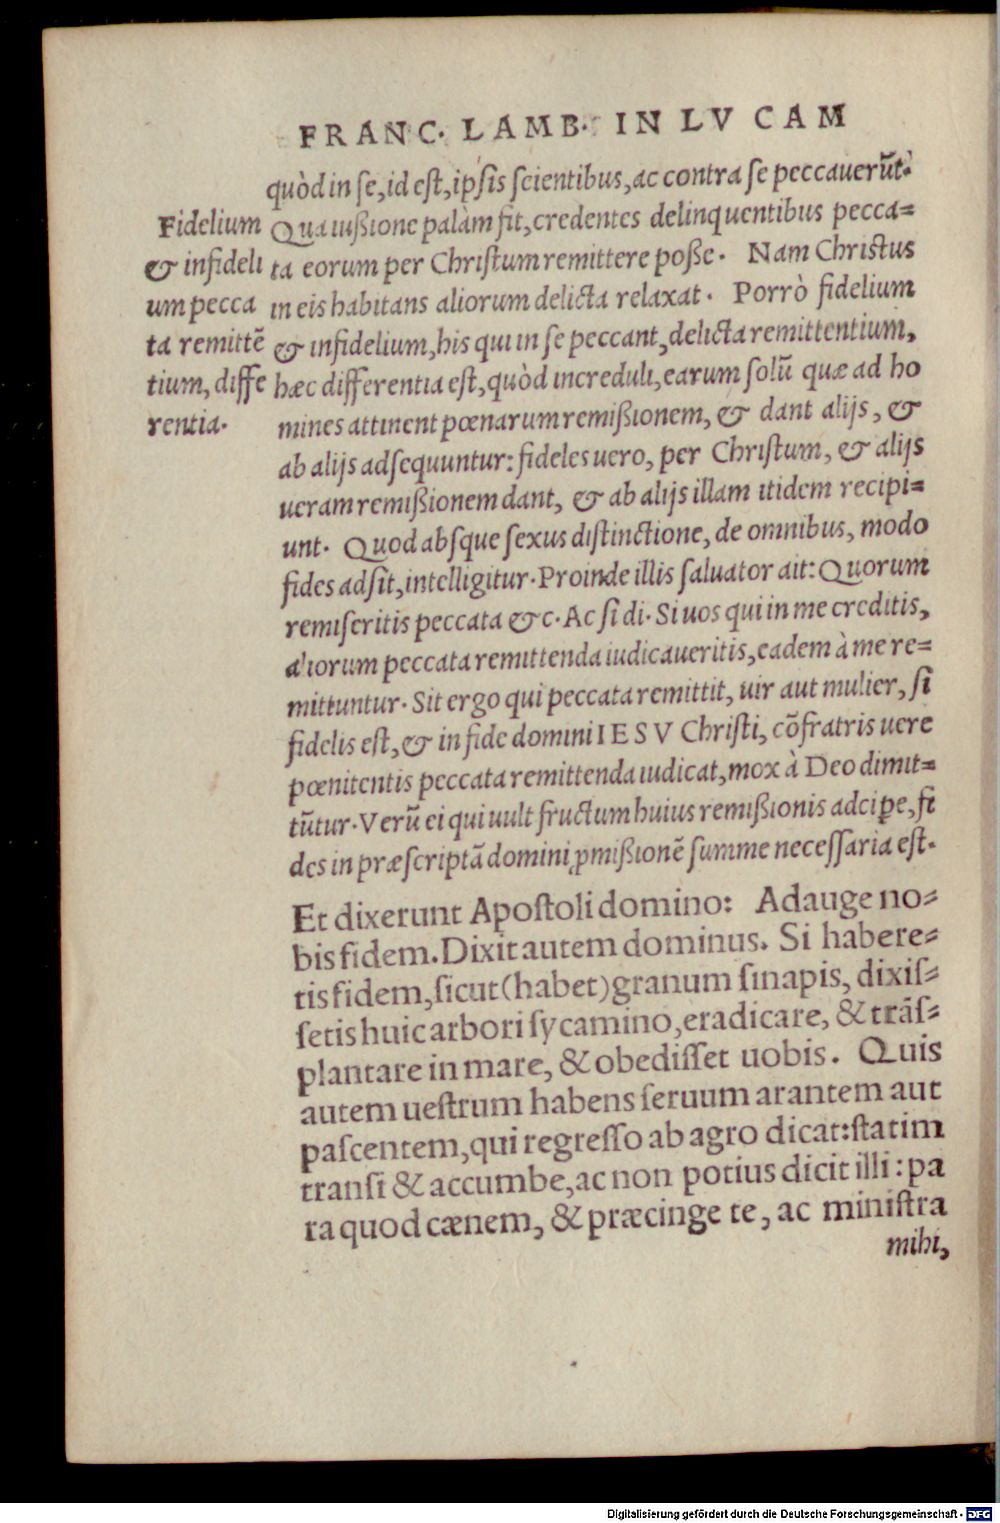 FRANC. LAMB. IN LVCAM
quòd in se, id est, ipsis scientibus, ac contra se peccauerũt.
Qua iußione palàm fit, credentes delinquentibus pecca=
ta eorum per Christum remittere poße. Nam Christus
in eis habitans aliorum delicta relaxat. Porrò fidelium
& infidelium, his qui in se peccant, delicta remittentium,
hæc differentia est, quòd increduli, earum solũ quæ ad ho
mines attinent pœnarum remißionem, & dant alijs, &
ab alijs adsequuntur: fideles uero, per Christum, & alijs
ueram remißionem dant, & ab alijs illam itidem recipi=
unt. Quod absque sexus distinctione, de omnibus, modo
fides adsit, intelligitur. Proinde illis saluator ait: Quorum
remiseritis peccata &c. Ac si di. Si uos qui in me creditis,
aliorum peccata remittenda iudicaueritis, eadem à me re=
mittuntur. Sit ergo qui peccata remittit, uir aut mulier, si
fidelis est, & in fide domini IESV Christi, cõfratris uere
pœnitentis peccata remittenda iudicat, mox à Deo dimit=
tũtur. Verũ ei qui uult fructum huius remißionis adcipe, fi
des in præscriptã domini ꝓmißionẽ summe necessaria est.
Fidelium
& infideli
um pecca
ta remittẽ
tium, diffe
rentia.
Et dixerunt Apostoli domino: Adauge no=
bis fidem. Dixit autem dominus. Si habere=
tis fidem, sicut (habet) granum sinapis, dixis=
setis huic arbori sycamino, eradicare, & trãs=
plantare in mare, & obedisset uobis. Quis
autem uestrum habens seruum arantem aut
pascentem, qui regresso ab agro dicat: statim
transi & accumbe, ac non potius dicit illi: pa
ra quod cænem, & præcinge te, ac ministra
mihi,
Digitalisierung gefördert durch die Deutsche Forschungsgemeinschaft - DFG